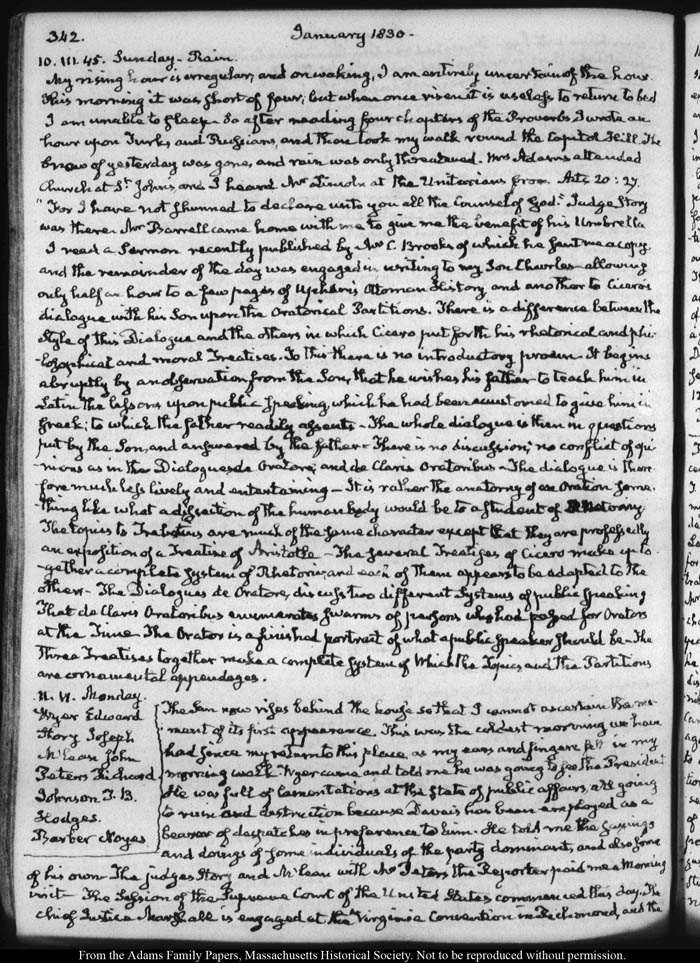 342. January 1830-
10. III. 45. Sunday- Rain.
My rising hour is irregular, and on waking, I am entirely uncertain of the hour.
This morning it was short of four; but when once risen it is useless to return to bed
I am unable to sleep. So after reading four chapters of the Proverbs I wrote an
hour upon Turks and Russians, and then took my walk round the Capitol Hill. The
snow of yesterday was gone, and rain was only threatened. Mrs Adams attended
Church at St Johns, and I heard Mr Lincoln at the Unitarians from Acts 20:27.
"For I have not shunned to declare unto you all the Counsel of God." Judge Story
was there. Mr Barrell came home with me to give me the benefit of his Umbrella
I read a Sermon recently published by Mr C. Brooks of which he sent me a copy,
and the remainder of the day was engaged in writing to my Son Charles- allowing
only half an hour to a few pages of Upham's Ottoman History, and another to Cicero's
dialogue with his Son upon the Oratorical Partitions. There is a difference between the
style of this Dialogue and the others in which Cicero put forth his rhetorical and phi-
-losophical and moral Treatises. To this there is no introductory proem. It begins
abruptly by an observation from the Son, that he wishes his father to teach him in
Latin the lessons upon public speaking, which he had been accustomed to give him in
Greek; to which the father readily assents- The whole dialogue is then in questions
put by the Son, and answered by the father- There is no discussion; no conflict of opi-
-nions as in the Dialogues de Oratore, and de Claris Oratoribus- The dialogue is there-
fore much less lively and entertaining- It is rather the anatomy of an Oration some-
-thing like what a dissection of the human body would be to a student of
The topics to Trebatius are much of the same character except that they are professedly
an exposition of a Treatise of Aristotle- The several Treatises of Cicero make up to-
-gether a complete system of Rhetoric, and each of them appears to be adapted to the
others- The Dialogues de Oratore, discuss two different systems of public speaking
That de Claris Oratoribus enumerates swarms of persons who had passed for Orators
at the Time. The Orator is a finished portrait of what a public speaker should be- The
Three Treatises together make a complete system of which the Topics and the Partitions
are ornamental appendages.
11. VI. Monday.
Wyer Edward
Story Joseph
McLean John
Peters Richard
Johnson
Hodges.
Barber Noyes
The Sun now rises behind the house so that I cannot ascertain the mo-
-ment of its first appearance. This was the coldest morning we have
had since my return to this place, as my ears and fingers felt in my
morning walk. Wyer came and told me he was going to see the President
He was full of lamentations at the state of public affairs, all going
to ruin and destruction because Davais has been employed as a
bearer of despatches in preference to him. He told me the sayings
and doings of some individuals of the party dominant, and also some
of his own- The judges Story and McLean with Mr Peters the Reporter paid me a Morning
visit- The Session of the Supreme Court of the United States commenced this day. The
chief Justice Marshall is engaged at the Virginia Convention in Richmond, and the
From the Adams Family Papers, Massachusetts Historical Society. Not to be reproduced without permission.